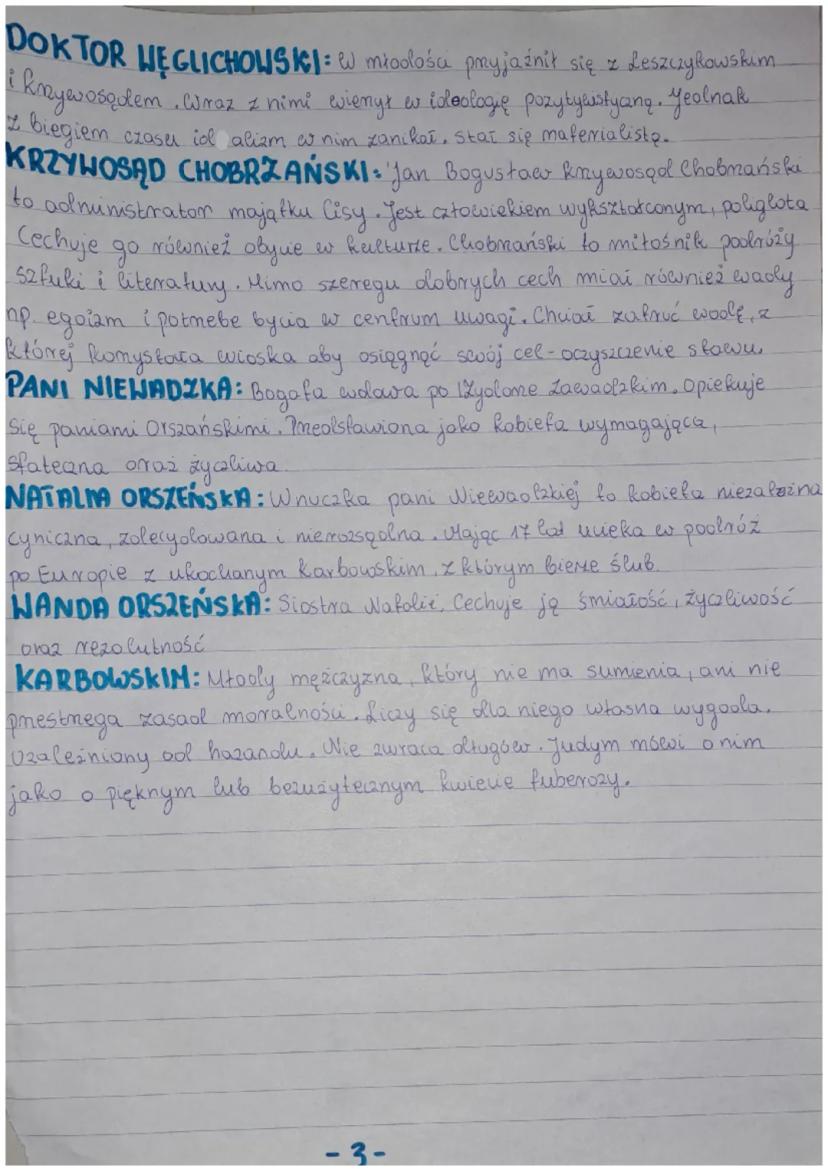 DOKTOR WĘGLICHOWSKI: W młodości przyjaźnił się z Leszczykowskim
i Krzywosądem. Wraz z nimi wierzył w ideologię pozytywistyczną. Jednak
z biegiem czasu id alizm w nim zanikał. Stał się materialistą.
KRZYWOSĄD CHOBRZAŃSKI: Jan Bogusław Krzywosąd Chobrzański
to administrator majątku Cisy. Jest człowiekiem wykształconym, poliglota
Cechuje go również obycie w kulturze. Chobrzański to miłośnik podróży
sztuki i literatury. Mimo szeregu dobrych cech miał również wady
np. egoizm i potrzebę bycia w centrum uwagi. Chciał zatruć wodę, z
której korzystała wioska aby osiągnąć swój cel - oczyszczenie stawu.
PANI NIEWADZKA: Bogata wdowa po Izydorze Zawadzkim. Opiekuje
się paniami Orszańskimi. Przedstawiona jako kobieta wymagająca,
stateczna oraz życzliwa.
NATALIA ORSZEŃSKA: Wnuczka pani Niewadzkiej to kobieta niezależna
cyniczna, zdecydowana i nierozsądna. Mając 17 lat ucieka w podróż
po Europie z ukochanym Karbowskim, z którym bierze ślub.
WANDA ORSZEŃSKA: Siostra Natalii. Cechuje ją śmiałość, życzliwość
oraz rezolutność
KARBOWSKIM: Młody mężczyzna, który nie ma sumienia, ani nie
przestrzega zasad moralności. Liczy się dla niego własna wygoda.
Uzależniony od hazardu. Nie zwraca długów. Judym mówi o nim
jako o pięknym lub bezużytecznym kwiecie tuberozy.
-3-